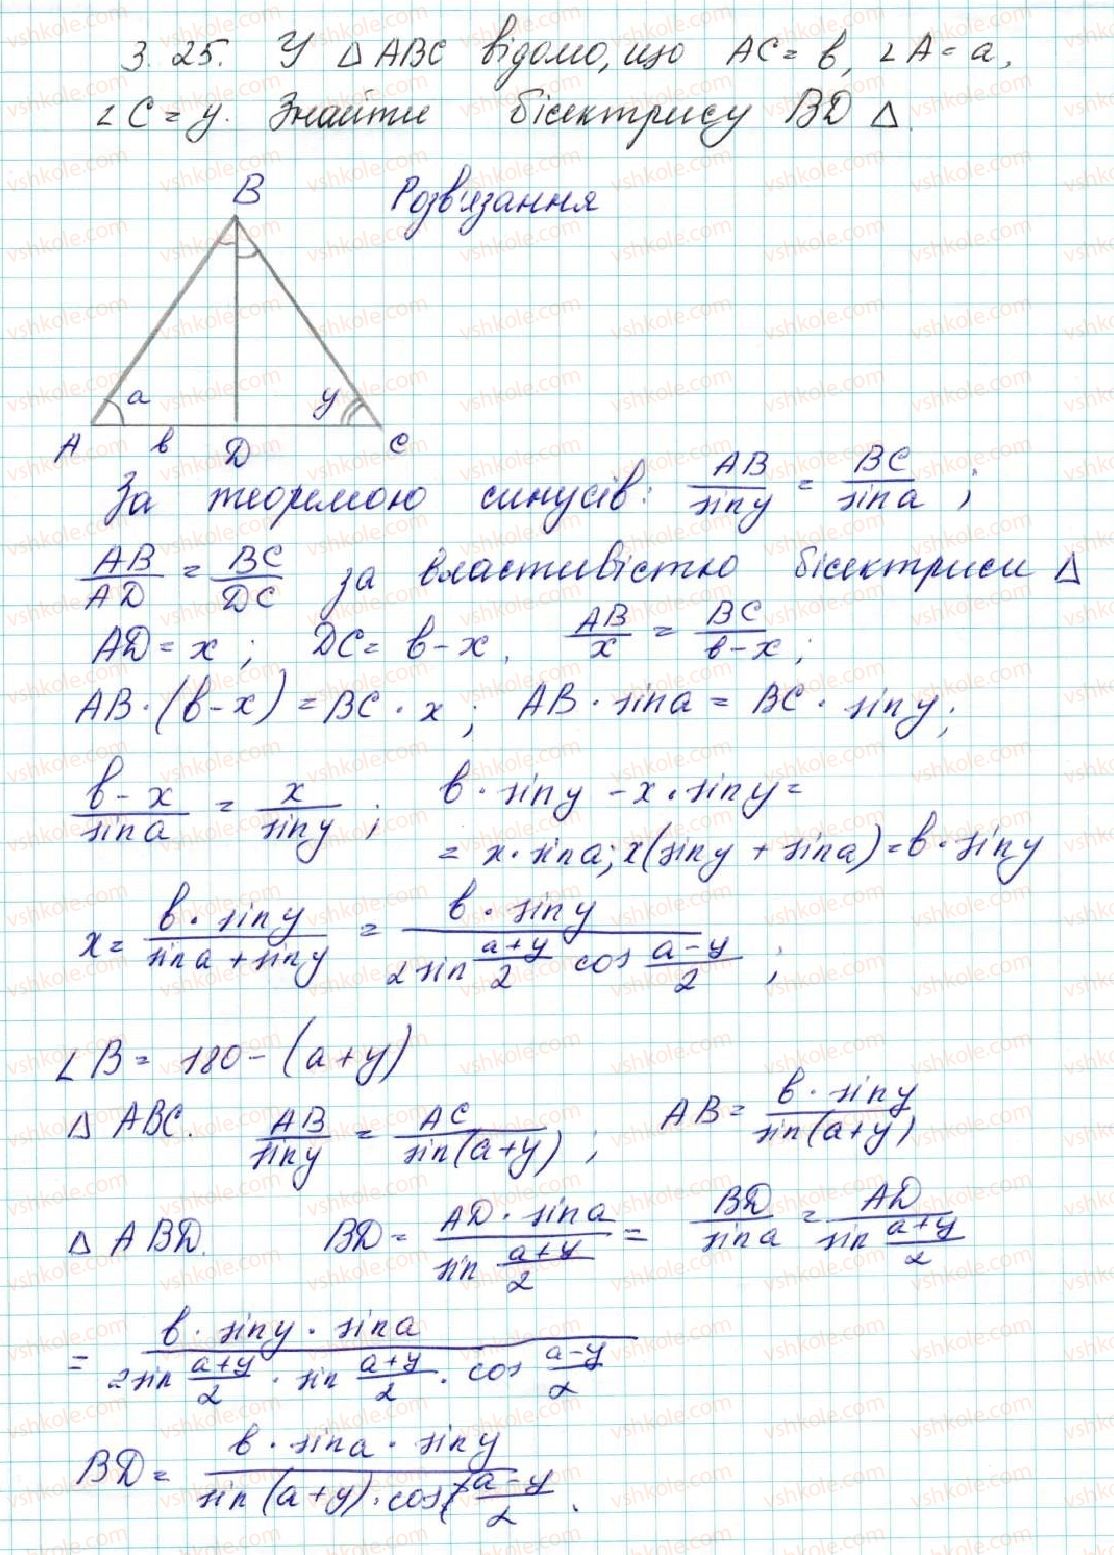 3.25. У △ABC відомо, що AC = b, ∠A = a,
∠C = y. Знайти бісектрису BD △.
Розв'язання
B
a
y
A b D C
За теоремою синусів: AB/sin y = BC/sin a ;
AB/AD = BC/DC за властивістю бісектриси △
AD = x ; DC = b - x . AB/x = BC/(b - x) ;
AB · (b - x) = BC · x ; AB · sin a = BC · sin y ;
(b - x)/sin a = x/sin y ; b · sin y - x · sin y =
= x · sin a ; x(sin y + sin a) = b · sin y
x = (b · sin y)/(sin a + sin y) = (b · sin y)/(2 sin (a+y)/2 cos (a-y)/2) ;
∠B = 180 - (a + y)
△ ABC. AB/sin y = AC/sin(a + y) ; AB = (b · sin y)/sin(a + y)
△ ABD. BD = (AD · sin a)/(sin (a+y)/2) = BD/sin a = AD/(sin (a+y)/2)
= (b · sin y · sin a)/(2 sin (a+y)/2 · sin (a+y)/2 · cos (a-y)/2)
BD = (b · sin a · sin y)/(sin (a + y) · cos (a-y)/2) .